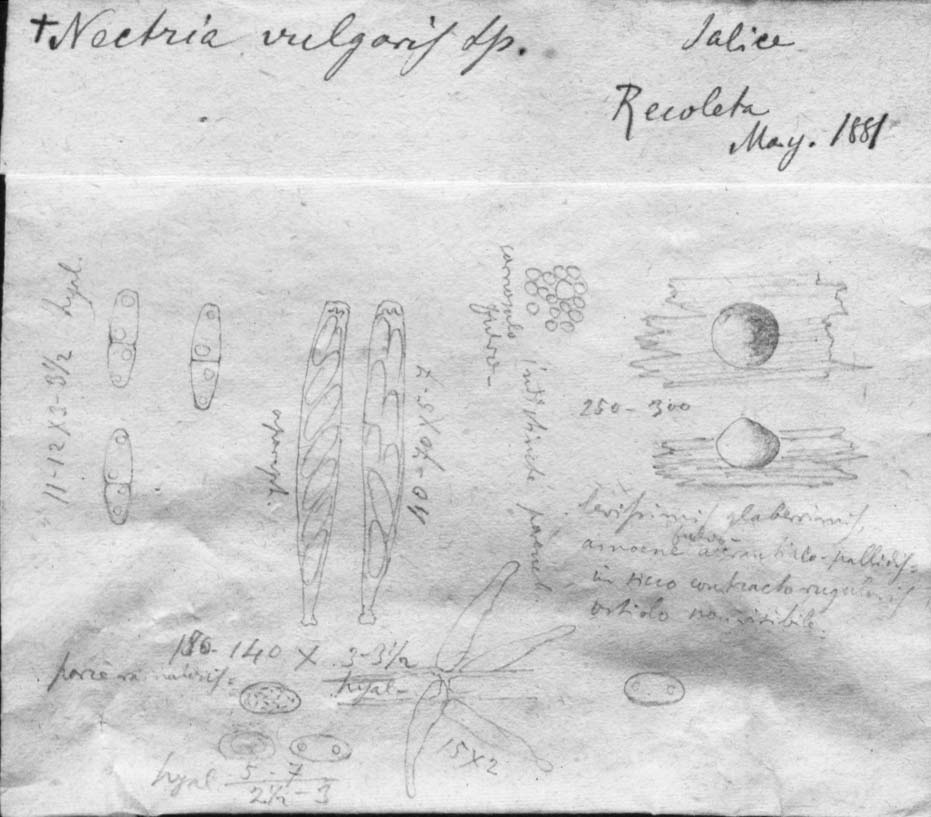 †Nectria vulgaris Sp.
Salice
Recoleta
May. 1881
11-12 X 3-3½ hyal.
aparaph.
70-75 X 5-7
carnosulo
fulvo-
indistincte
250-300
levissimis glaberrimis,
fulvo-
amoene aurantiaco-pallidis-
in sicco contracto rugulosis
ostiolo non visibile.
140 X 3-3½
hyal-
15 X 2
hyal 5-7
2½-3